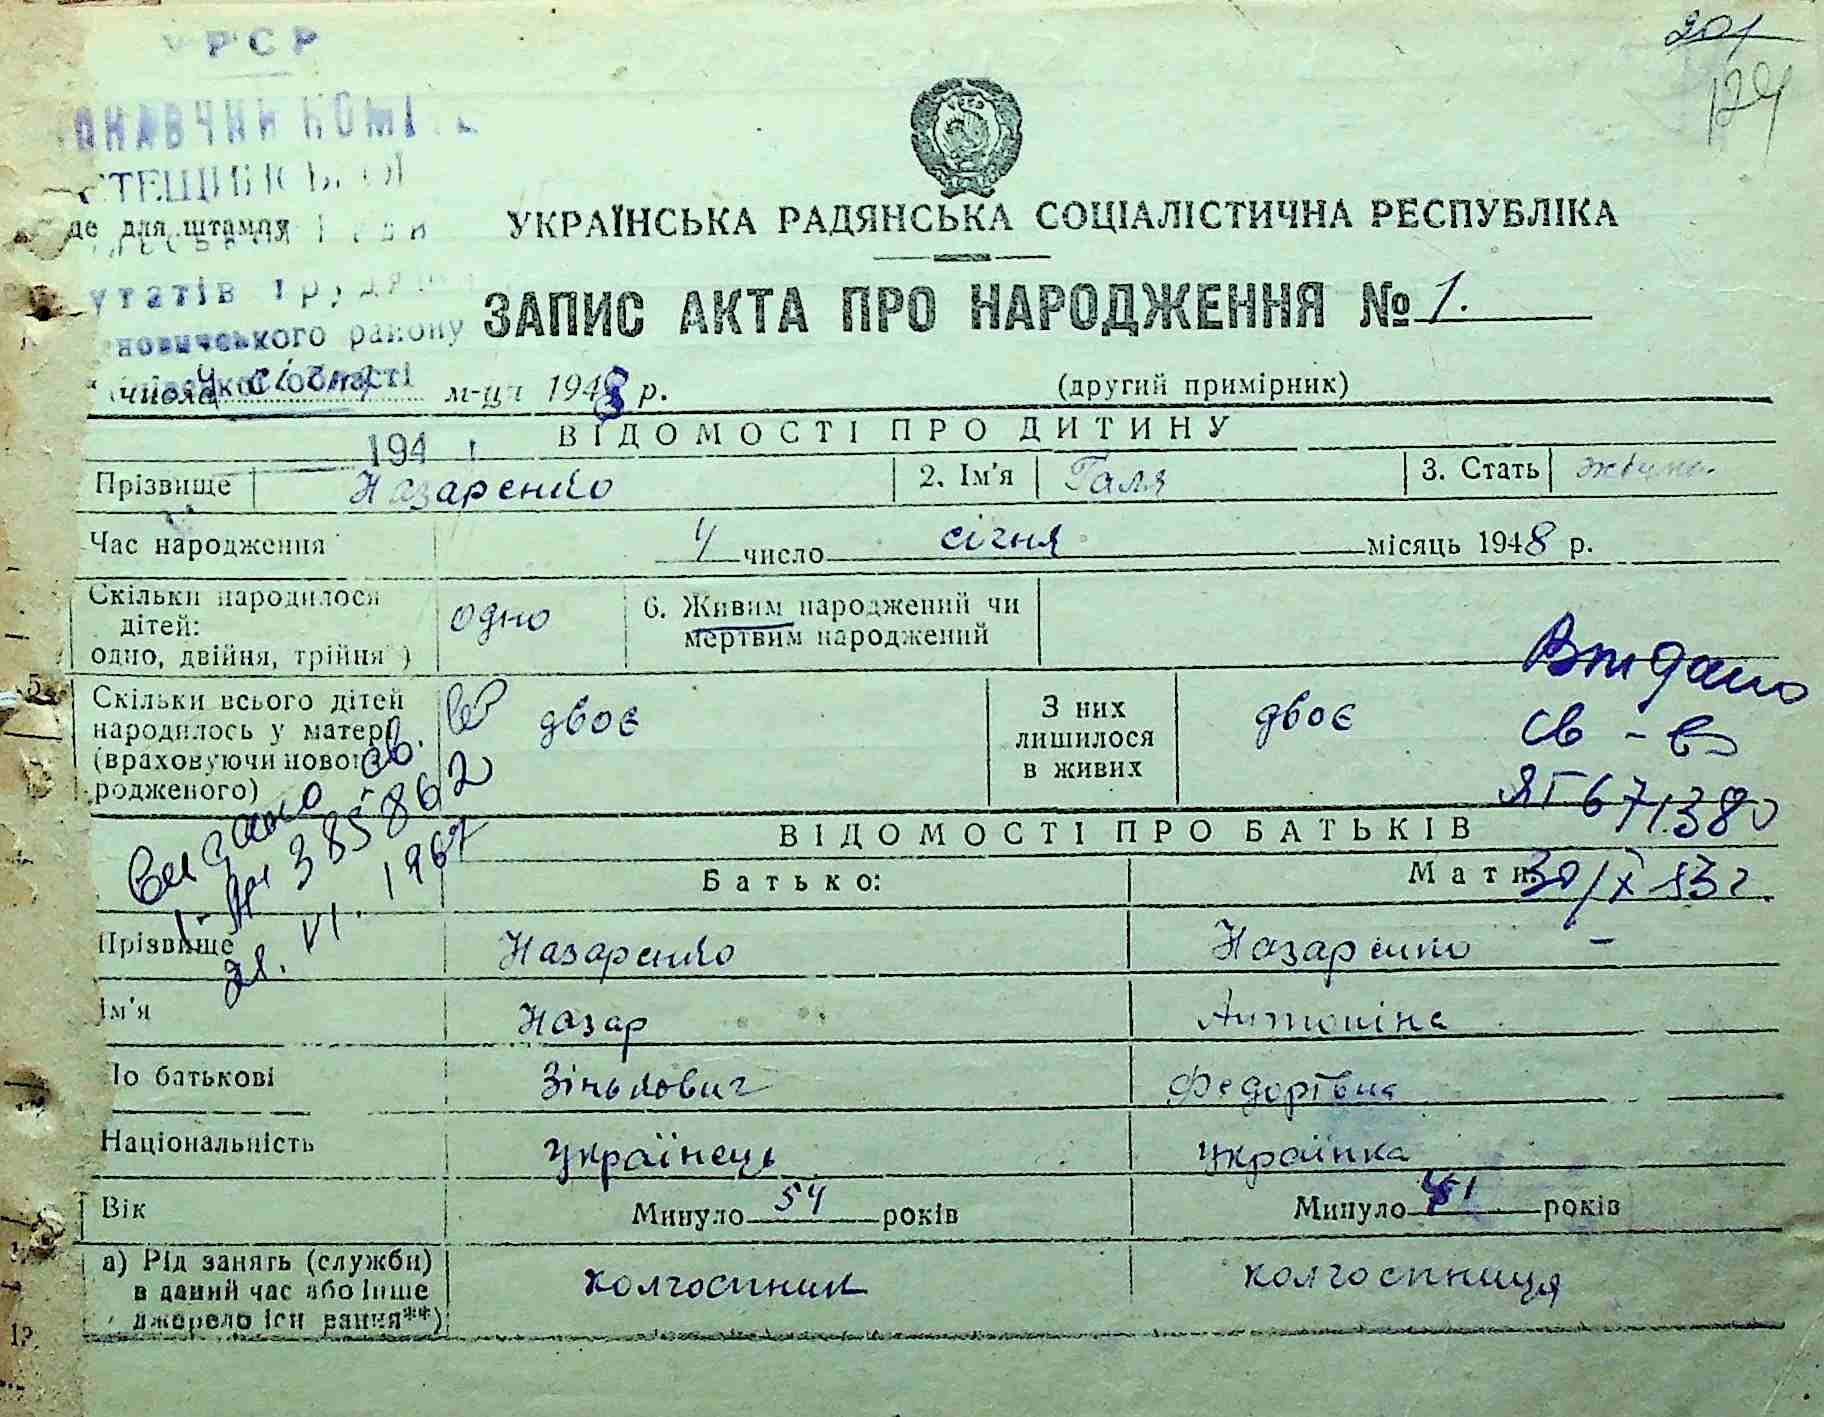 УРСР
201
124
ОНАВЧИЙ КОМІ
СТЕЩИНСЬКОЇ
де для штампу
УКРАЇНСЬКА РАДЯНСЬКА СОЦІАЛІСТИЧНА РЕСПУБЛІКА
утатів трудя
ЗАПИС АКТА ПРО НАРОДЖЕННЯ № 1.
новичського району
області
числа 4 січня м-ця 1948 р.
(другий примірник)
194
ВІДОМОСТІ ПРО ДИТИНУ
Прізвище Назаренко 2. Ім'я Галя 3. Стать
Час народження 4 число січня місяць 1948 р.
Скільки народилося дітей: одно, двійня, трійня*) одно 6. Живим народжений чи мертвим народжений
Скільки всього дітей народилось у матері (враховуючи новонародженого) двоє З них лишилося в живих двоє
Видано
св-во
ЯГ 671380
30/X 53 г.
Видано св. во
385862
21. VI. 1967
ВІДОМОСТІ ПРО БАТЬКІВ
Батько: Мати:
Прізвище Назаренко Назаренко
Ім'я Назар Антоніна
По батькові Зінькович Федорівна
Національність українець українка
Вік Минуло 54 років Минуло 41 років
а) Рід занять (служби) в даний час або інше джерело існування**) колгоспник колгоспниця